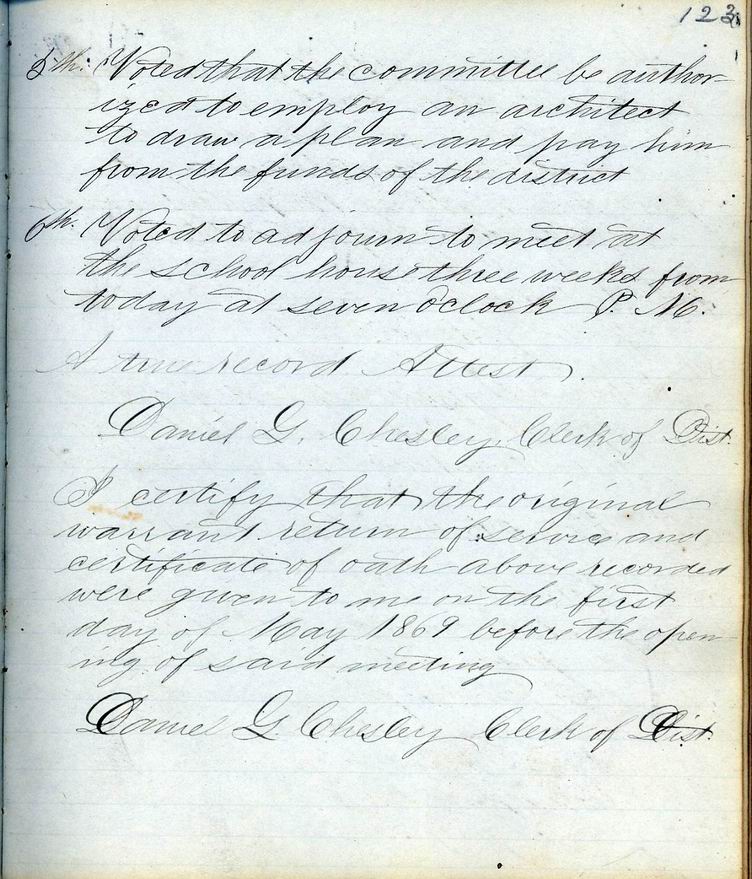 123
5th. Voted that the committee be author-
ized to employ an architect
to draw a plan and pay him
from the funds of the district
6th. Voted to adjourn to meet at
the school house three weeks from
today at seven o'clock P. M.
A true record Attest.
Daniel G. Chesley, Clerk of Dist.
I certify that the original
warrant return of service and
certificate of oath above recorded
were given to me on the first
day of May 1869 before the open-
ing of said meeting
Daniel G. Chesley Clerk of Dist.